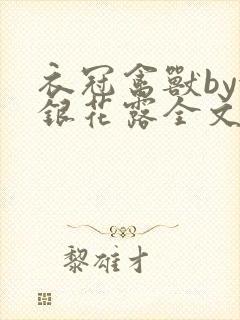 衣冠禽獸by
銀花露全文
黎雄才